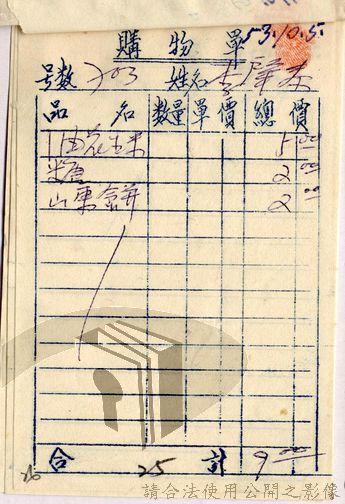 53.10.5.
購物單
号数 703 姓名 李
品名 数量 單價 總價
油花生米 5.00
糖 2.00
山東餅 2.00
合 25 計 9.00
請合法使用公開之影像